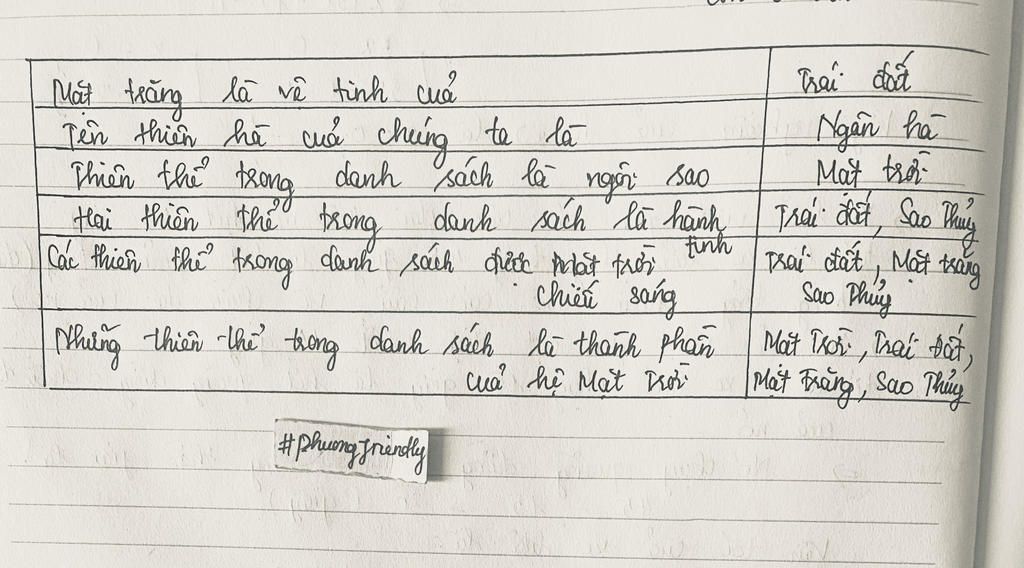 Mặt trăng là vệ tinh của Trái đất
Tên thiên hà của chúng ta là Ngân hà
Thiên thể trong danh sách là ngôi sao Mặt trời
Hai thiên thể trong danh sách là hành tinh Trái đất, Sao Thủy
Các thiên thể trong danh sách được Mặt trời Trái đất, Mặt trăng
chiếu sáng Sao Thủy
Những thiên thể trong danh sách là thành phần Mặt Trời, Trái Đất,
của hệ Mặt Trời Mặt Trăng, Sao Thủy
#phuongfriendly